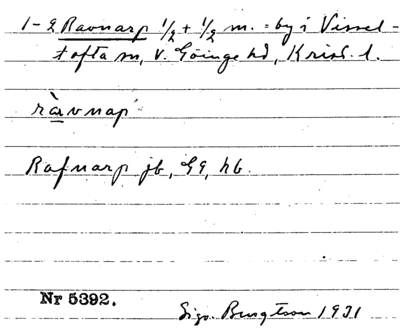 1-2 Ravnarp 1/2 + 1/2 m. = by i Vissel-
tofta sn, V. Göinge hd, Krist. l.
ràvnap
Rafnarp jb, GG, hb.
Nr 5392.
Sigv. Bengtsson 1931